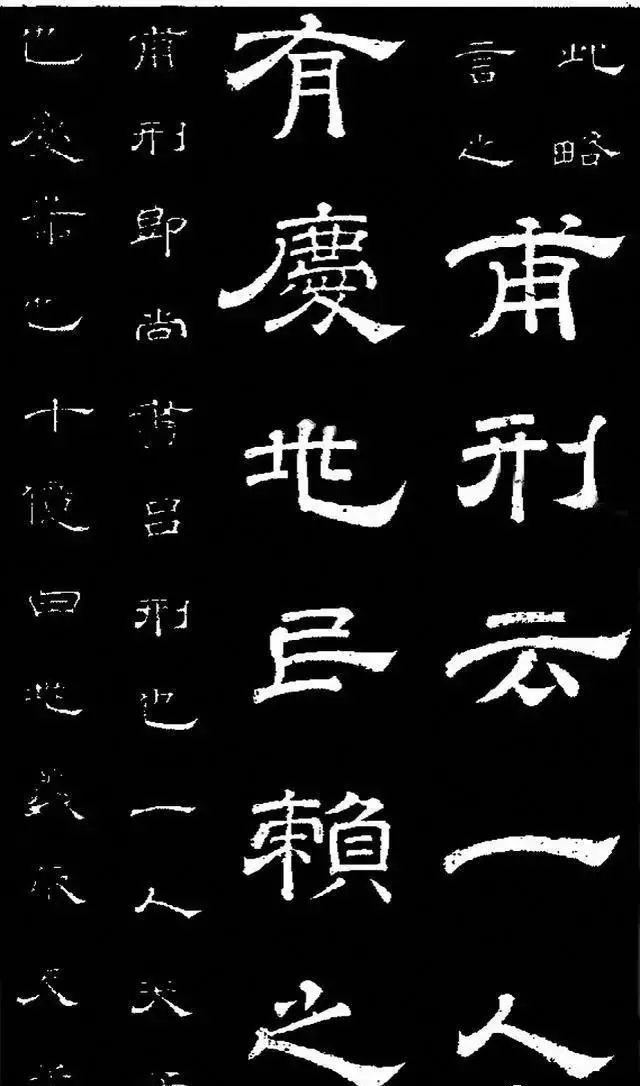 此略
言之
甫刑云一人
有慶兆民賴之
甫刑即尚書呂刑也一人天
也慶善也十億曰兆義取天